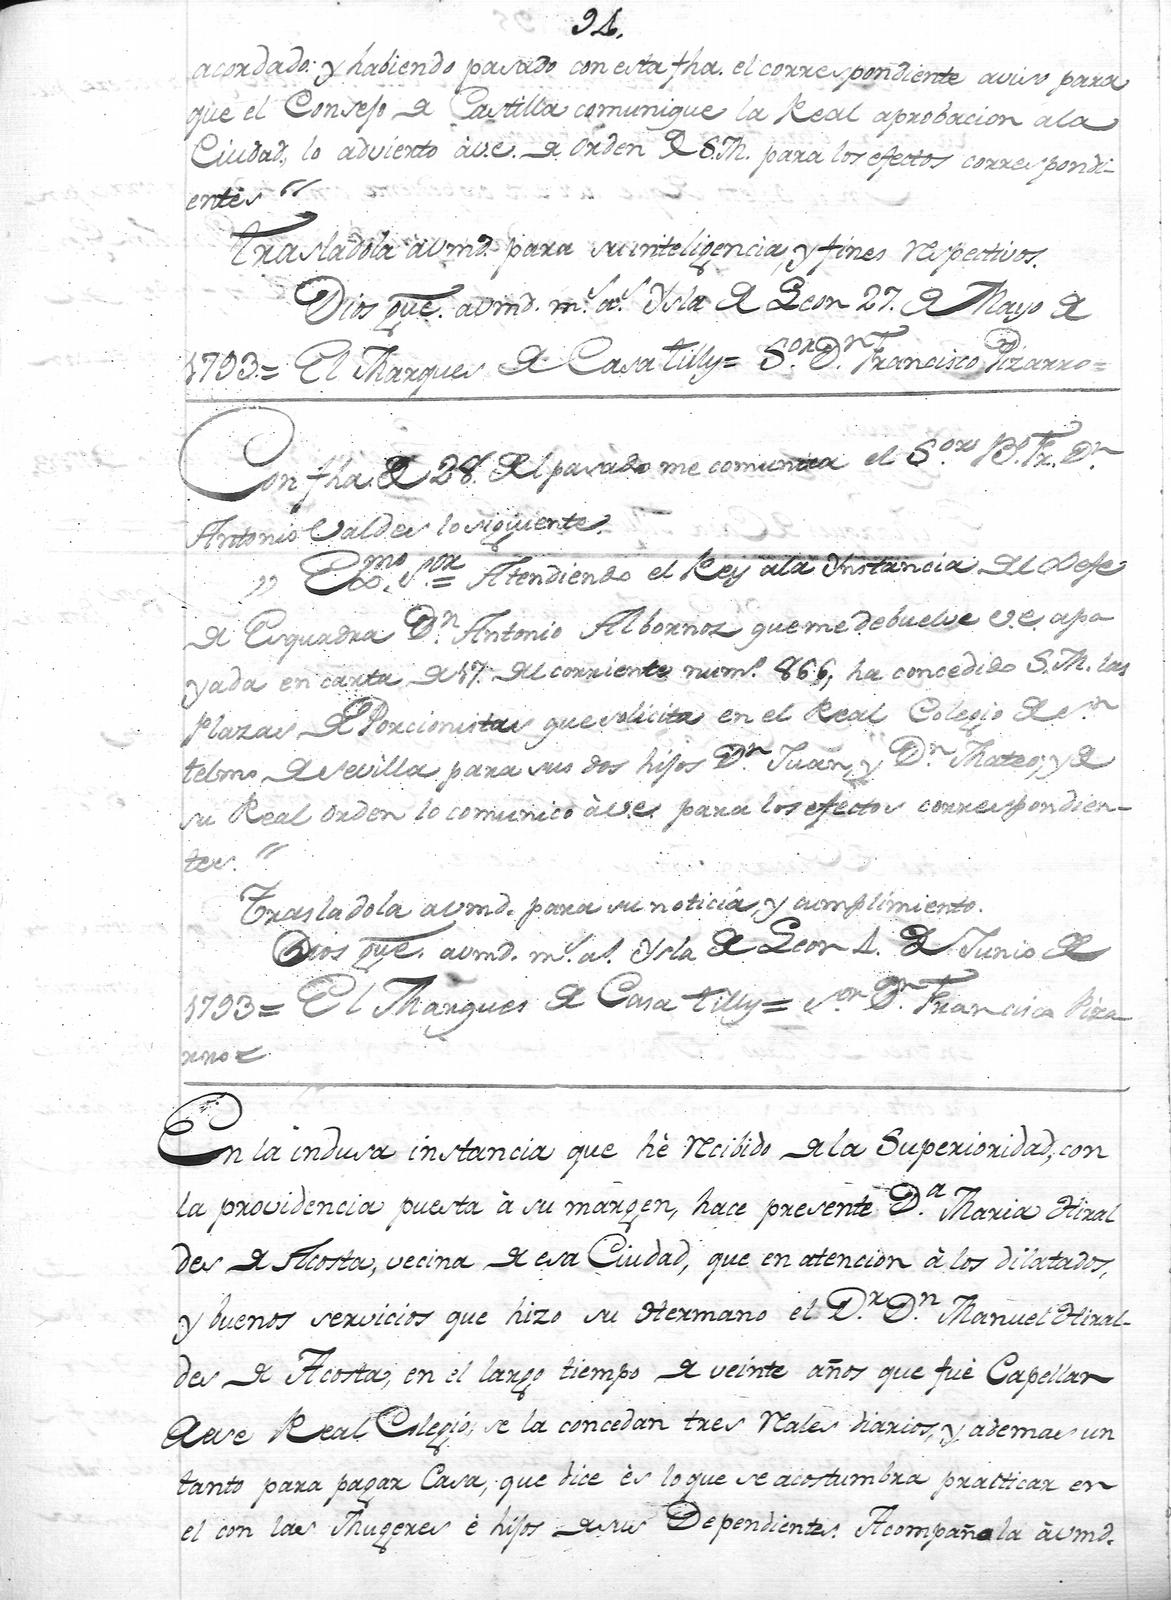 94.
acordado: y habiendo pasado con esta fha. el correspondiente aviso para
que el Consejo de Castilla comunique la Real aprobacion a la
Ciudad, lo advierto à v.e. de orden de S.M. para los efectos correspondi-
entes"
Trasladola a vmd. para su inteligencia, y fines respectivos.
Dios gue. a vmd. ms. as. Ysla de Leon 27. de Mayo de
1793.= El Marques de Casa tilly= Sor. Dn. Francisco Pizarro=
Con fha. de 28. del pasado me comunica el Sor. Bo. Fr. Dn.
Antonio Valdes lo siguiente.
" Exmo. Sor.= Atendiendo el Rey a la Ynstancia del Gefe
de Esquadra Dn. Antonio Albornoz que me debuelve v.e. apo
yada en carta de 17. del corriente numo. 866, ha concedido S.M. las
Plazas de Porcionistas que solicita en el Real Colegio de Sn.
telmo de Sevilla para sus dos hijos Dn. Juan, y Dn. Mateo; y de
su Real orden lo comunico à v.e. para los efectos correspondien-
tes."
Trasladola a vmd. para su noticia, y cumplimiento.
Dios gue. a vmd. ms. as. Ysla de Leon 4. de Junio de
1793= El Marques de Casa tilly= Sor. Dn. Francisco Piza
rro=
En la indusa instancia que hè recibido de la Superioridad, con
la providencia puesta à su margen, hace presente Da. Maria Hiral
des de Acosta, vecina de esa Ciudad, que en atencion à los dilatados,
y buenos servicios que hizo su Hermano el Dr. Dn. Manuel Hiral-
des de Acosta, en el largo tiempo de veinte años que fuè Capellan
de ese Real Colegio, se la concedan tres reales diarios, y ademas un
tanto para pagar Casa, que dice ès lo que se acostumbra practicar en
el con las Mugeres è hijos de sus Dependientes. Acompañola à vmd.